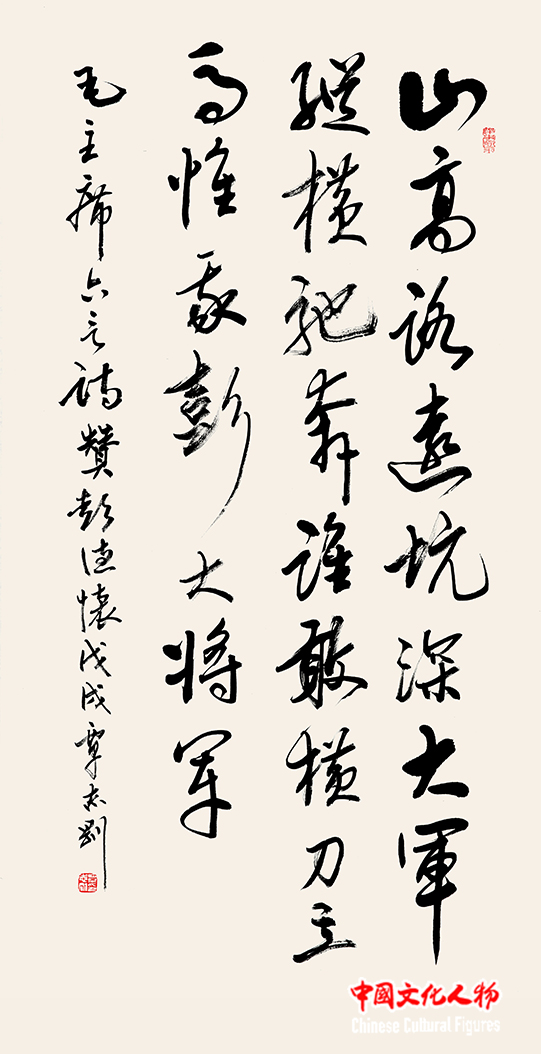 山高路遠坑深大軍
縱橫馳奔誰敢橫刀立
馬惟我彭大將軍
毛主席六言詩贊彭德懷戊戌覃志剛
中國文化人物
Chinese Cultural Figures